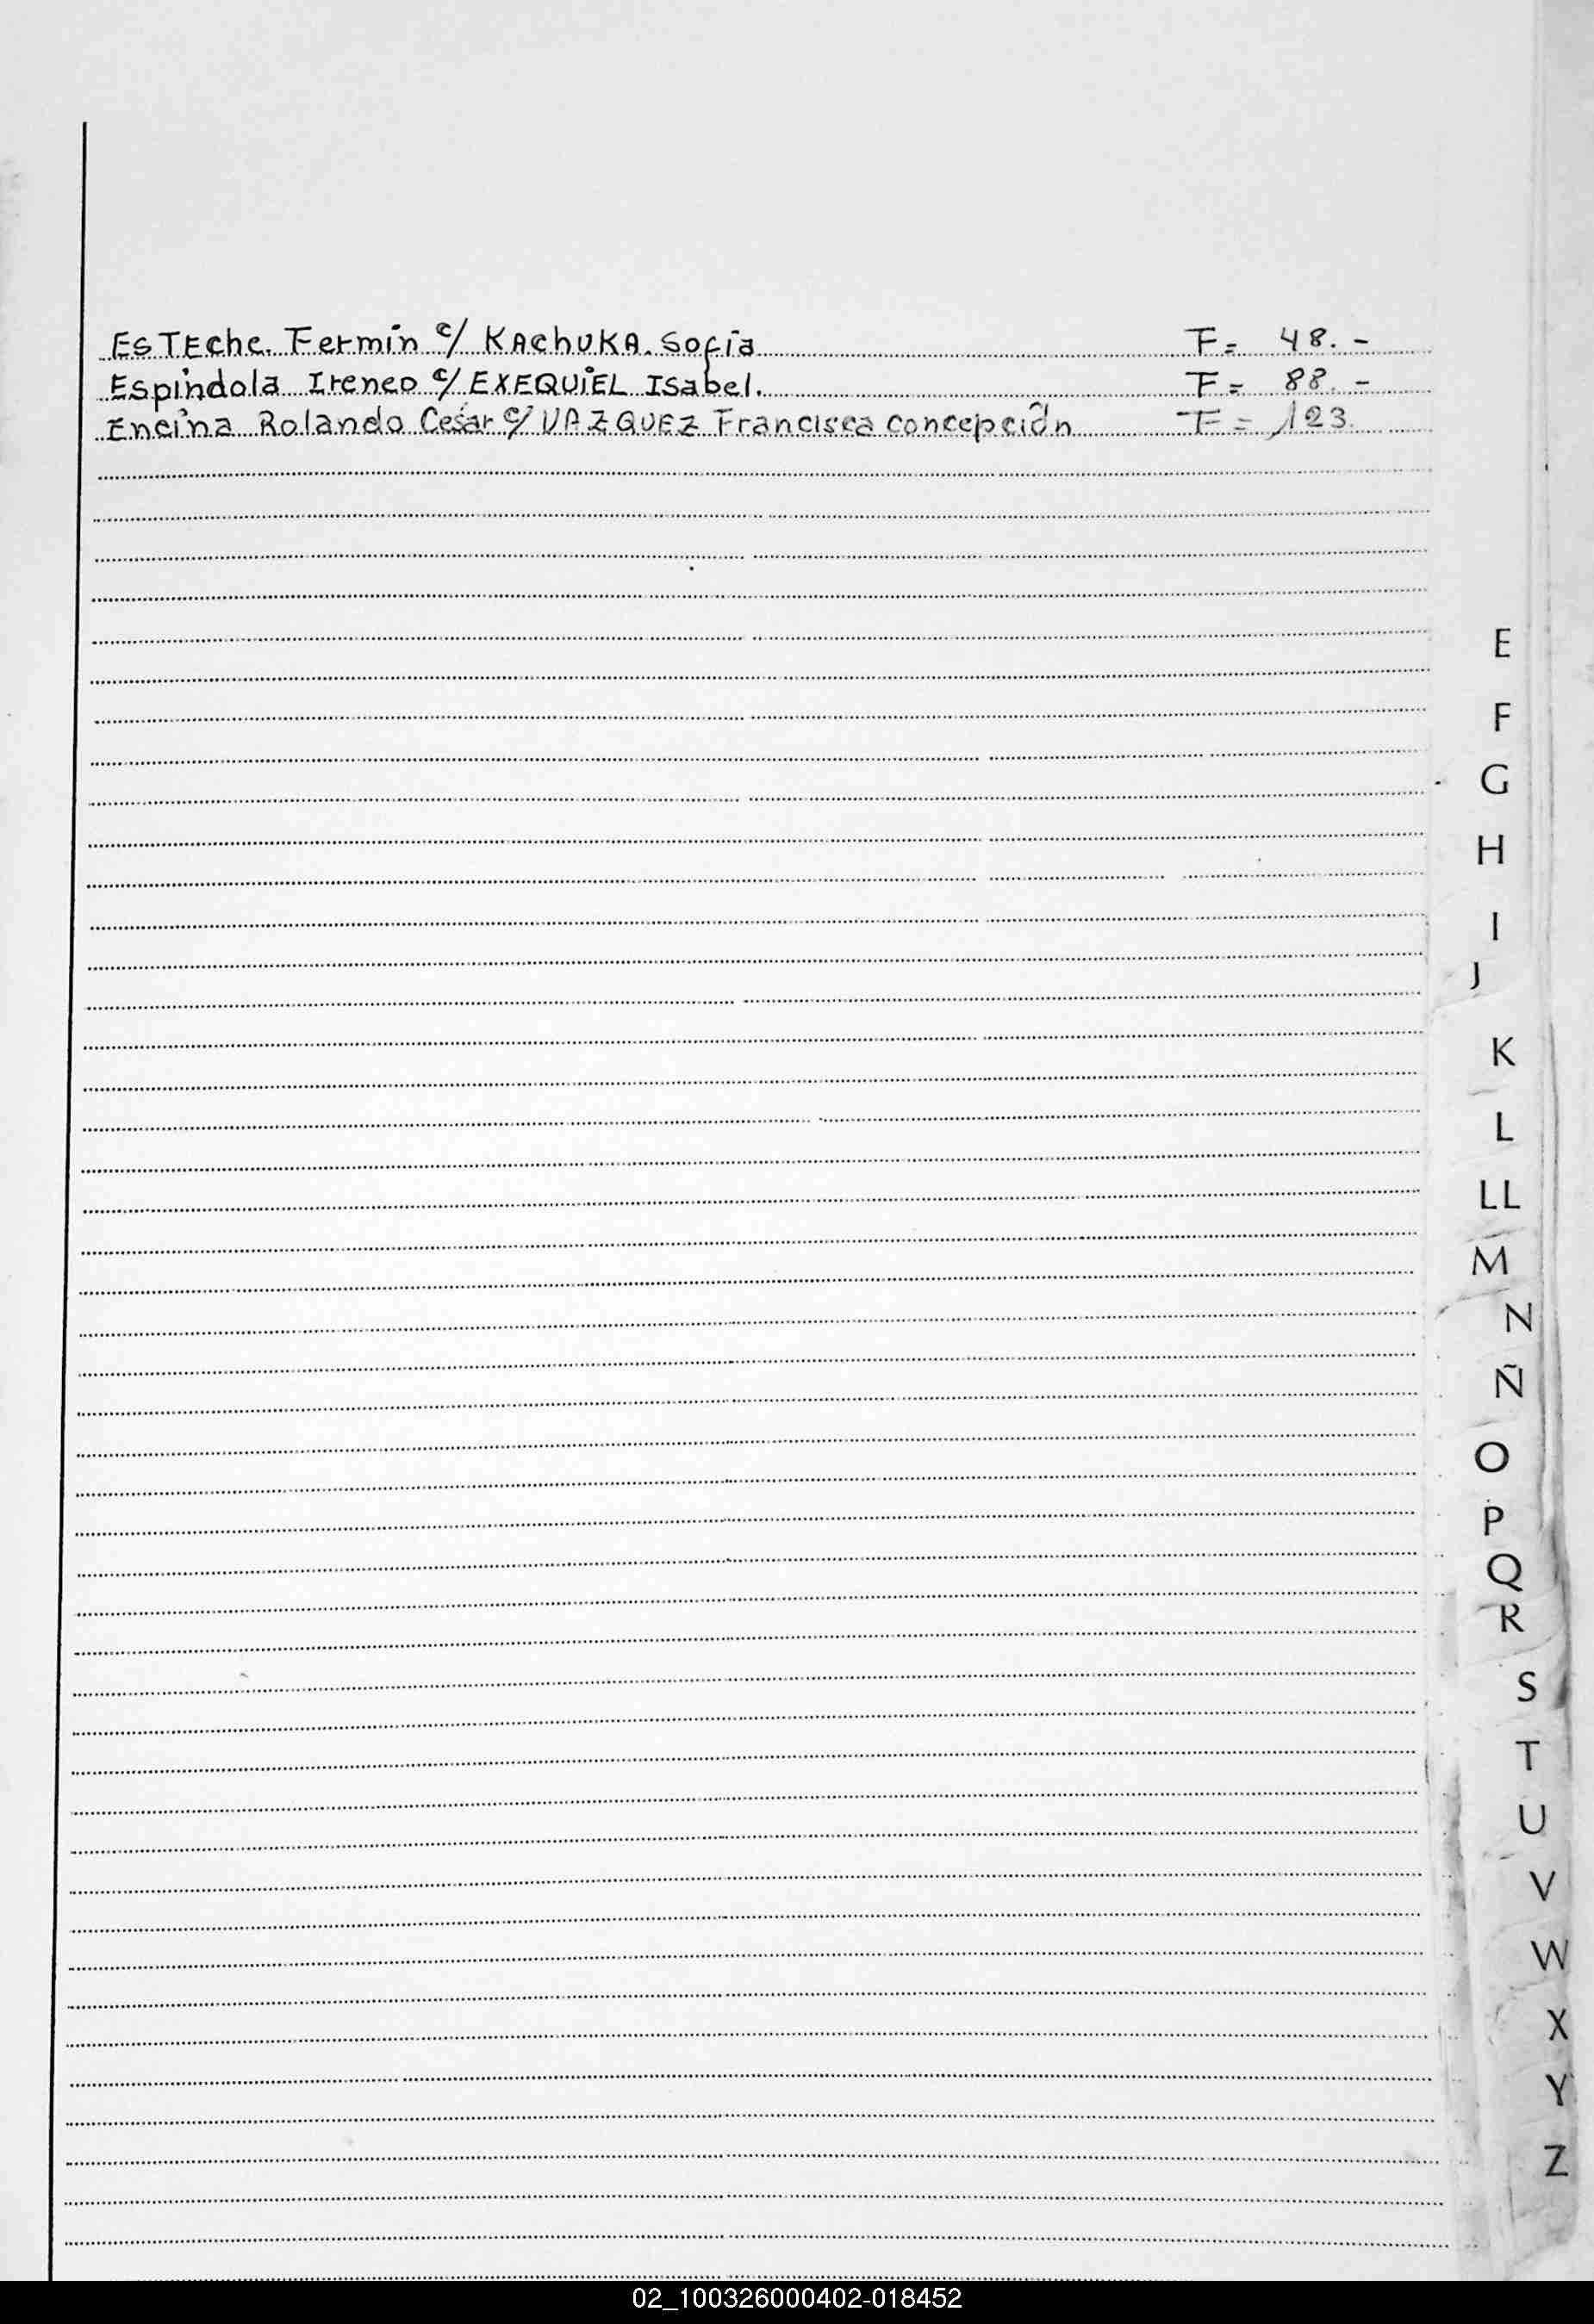 EsTEche. Fermín c/ KAchUKA. Sofía F= 48.-
Espíndola Ireneo c/ EXEQUiEL Isabel. F= 88.-
Encina Rolando César c/ VAZQUEZ Francisca concepción F= 123.
E
F
G
H
I
J
K
L
LL
M
N
Ñ
O
P
Q
R
S
T
U
V
W
X
Y
Z
02_100326000402-018452